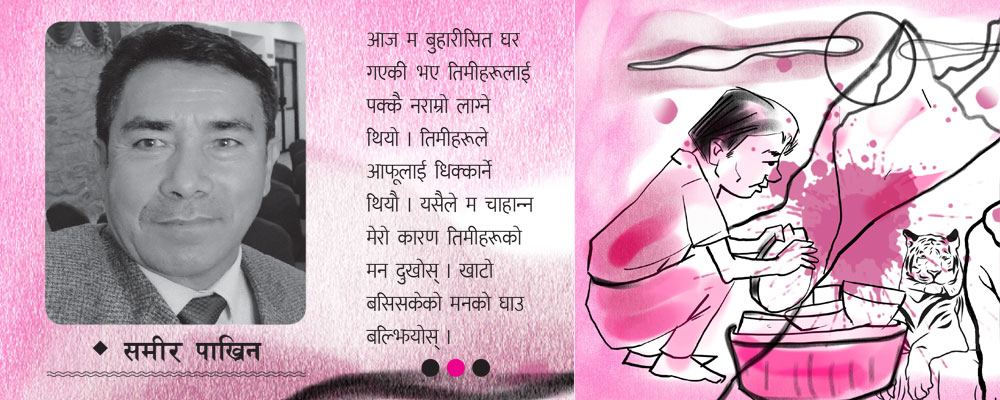 आज म बुहारीसित घर
गएकी भए तिमीहरूलाई
पक्कै नराम्रो लाग्ने
थियो । तिमीहरूले
आफूलाई धिक्कार्ने
थियौ । यसैले म चाहान्न
मेरो कारण तिमीहरूको
मन दुखोस् । खाटो
बसिसकेको मनको घाउ
बल्झियोस् ।
समीर पाख्रिन